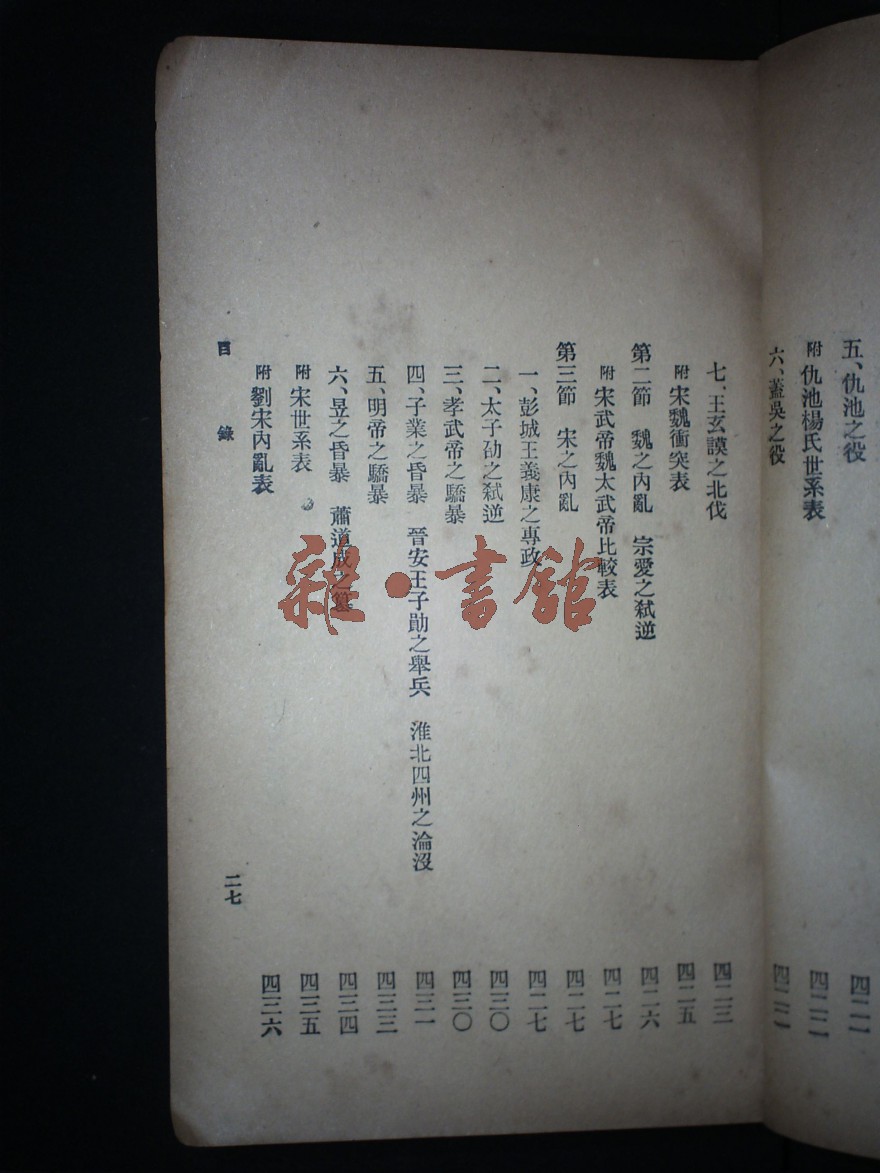 五、仇池之役 四二一
附 仇池楊氏世系表 四二二
六、蓋吳之役 四二二
七、王玄謨之北伐 四二三
附 宋魏衝突表 四二五
第二節 魏之內亂 宗愛之弒逆 四二六
附 宋武帝魏太武帝比較表 四二七
第三節 宋之內亂 四二七
一、彭城王義康之專政 四二七
二、太子劭之弒逆 四三〇
三、孝武帝之驕暴 四三〇
四、子業之昏暴 晉安王子勛之舉兵 淮北四州之淪沒 四三一
五、明帝之驕暴 四三三
六、昱之昏暴 蕭道成之篡 四三四
附 宋世系表 四三五
附 劉宋內亂表 四三六
目錄 二七
雜·書館